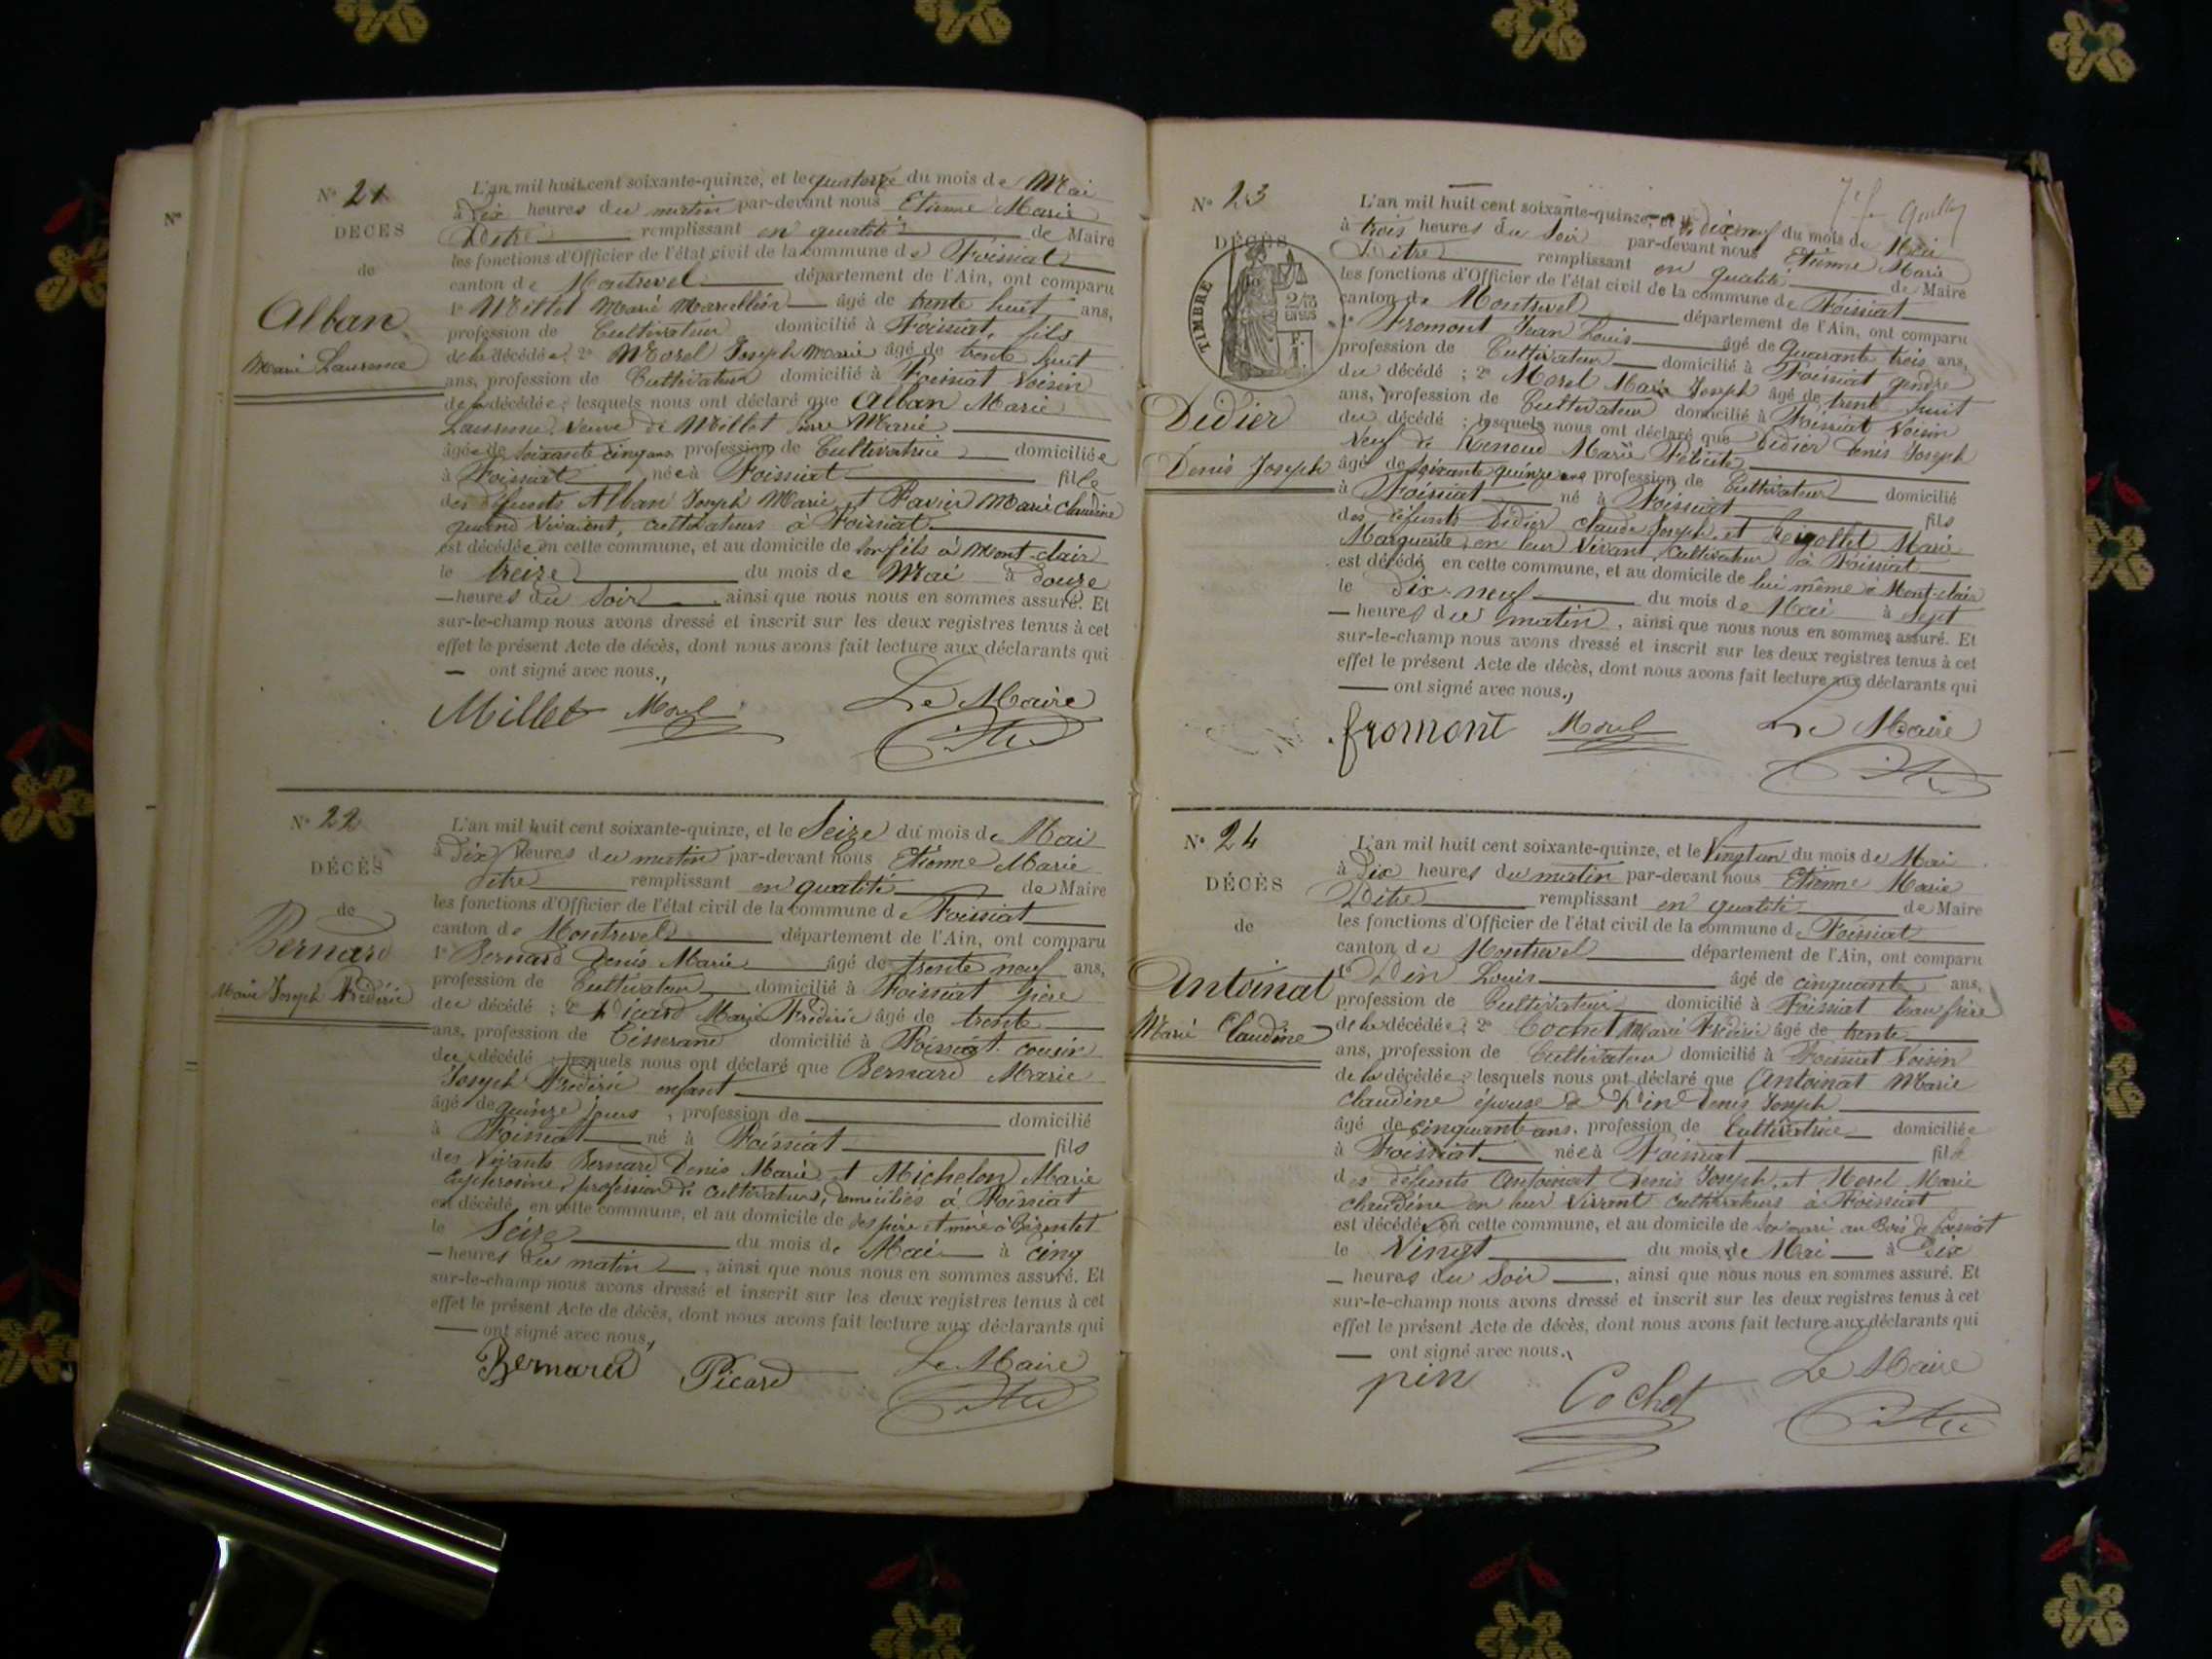 N° 21
DÉCÈS
de
Alban
Marie Laurence
L'an mil huit cent soixante-quinze, et le quatorze du mois de Mai
à dix heures du matin par-devant nous Etienne Marie
Pitre remplissant en qualité de Maire
les fonctions d'Officier de l'état civil de la commune de Foissiat
canton de Montrevel département de l'Ain, ont comparu
1° Millet Marie Marcellin âgé de trente huit ans,
profession de Cultivateur domicilié à Foissiat, fils
de la décédée; 2° Morel Joseph Marie âgé de trente huit
ans, profession de Cultivateur domicilié à Foissiat voisin
de la décédée; lesquels nous ont déclaré que Alban Marie
Laurence, veuve de Millet Pierre Marie
âgée de soixante cinq ans, profession de Cultivatrice domiciliée
à Foissiat née à Foissiat fille
des défunts Alban Joseph Marie et Favier Marie Claudine
quand vivaient, cultivateurs à Foissiat
est décédée en cette commune, et au domicile de son fils à Mont-clair
le treize du mois de Mai à douze
heures du soir, ainsi que nous nous en sommes assuré. Et
sur-le-champ nous avons dressé et inscrit sur les deux registres tenus à cet
effet le présent Acte de décès, dont nous avons fait lecture aux déclarants qui
ont signé avec nous.,
Millet Morel Le Maire
N° 22
DÉCÈS
de
Bernard
Marie Joseph Frédéric
L'an mil huit cent soixante-quinze, et le Seize du mois de Mai
à dix heures du matin par-devant nous Etienne Marie
Pitre remplissant en qualité de Maire
les fonctions d'Officier de l'état civil de la commune de Foissiat
canton de Montrevel département de l'Ain, ont comparu
1° Bernard Denis Marie âgé de trente neuf ans,
profession de Cultivateur domicilié à Foissiat père
du décédé; 2° Picard Marie Frédéric âgé de trente
ans, profession de Tisserand domicilié à Foissiat cousin
du décédé; lesquels nous ont déclaré que Bernard Marie
Joseph Frédéric enfant
âgé de quinze jours, profession de domicilié
à Foissiat né à Foissiat fils
des vivants Bernard Denis Marie et Michelon Marie
profession de cultivateurs, domiciliés à Foissiat
est décédé en cette commune, et au domicile de ses père et mère à
le Seize du mois de Mai à cinq
heures du matin, ainsi que nous nous en sommes assuré. Et
sur-le-champ nous avons dressé et inscrit sur les deux registres tenus à cet
effet le présent Acte de décès, dont nous avons fait lecture aux déclarants qui
ont signé avec nous,
Bernard Picard Le Maire
N° 23
DÉCÈS
TIMBRE
Didier
Denis Joseph
L'an mil huit cent soixante-quinze, et le dix neuf du mois de Mai
à trois heures du soir par-devant nous Etienne Marie
Pitre remplissant en qualité de Maire
les fonctions d'Officier de l'état civil de la commune de Foissiat
canton de Montrevel département de l'Ain, ont comparu
1° Fromont Jean Louis âgé de quarante trois ans,
profession de Cultivateur domicilié à Foissiat gendre
du décédé; 2° Morel Marie Joseph âgé de trente huit
ans, profession de Cultivateur domicilié à Foissiat voisin
du décédé; lesquels nous ont déclaré que Didier Denis Joseph
veuf de Renoud Marie Félicité
âgé de soixante quinze ans profession de Cultivateur domicilié
à Foissiat né à Foissiat fils
des défunts Didier Claude Joseph, et Marie
Marguerite, en leur vivant cultivateur à Foissiat
est décédé en cette commune, et au domicile de lui même à Mont-clair
le dix-neuf du mois de Mai à sept
heures du matin, ainsi que nous nous en sommes assuré. Et
sur-le-champ nous avons dressé et inscrit sur les deux registres tenus à cet
effet le présent Acte de décès, dont nous avons fait lecture aux déclarants qui
ont signé avec nous.,
fromont Morel Le Maire
N° 24
DÉCÈS
de
Antoinat
Marie Claudine
L'an mil huit cent soixante-quinze, et le Vingt un du mois de Mai
à dix heures du matin par-devant nous Etienne Marie
Pitre remplissant en qualité de Maire
les fonctions d'Officier de l'état civil de la commune de Foissiat
canton de Montrevel département de l'Ain, ont comparu
1° Pin Louis âgé de cinquante ans,
profession de Cultivateur domicilié à Foissiat beau frère
de la décédée; 2° Cochet Marie Frédéric âgé de trente
ans, profession de Cultivateur domicilié à Foissiat voisin
de la décédée; lesquels nous ont déclaré que Antoinat Marie
Claudine épouse de Pin Denis Joseph
âgée de cinquante ans, profession de Cultivatrice domiciliée
à Foissiat née à Foissiat fille
des défunts Antoinat Denis Joseph, et Morel Marie
Claudine en leur vivant cultivateurs à Foissiat
est décédée en cette commune, et au domicile de son mari au Bois de Foissiat
le Vingt du mois de Mai à dix
heures du soir, ainsi que nous nous en sommes assuré. Et
sur-le-champ nous avons dressé et inscrit sur les deux registres tenus à cet
effet le présent Acte de décès, dont nous avons fait lecture aux déclarants qui
ont signé avec nous.,
pin Cochet Le Maire